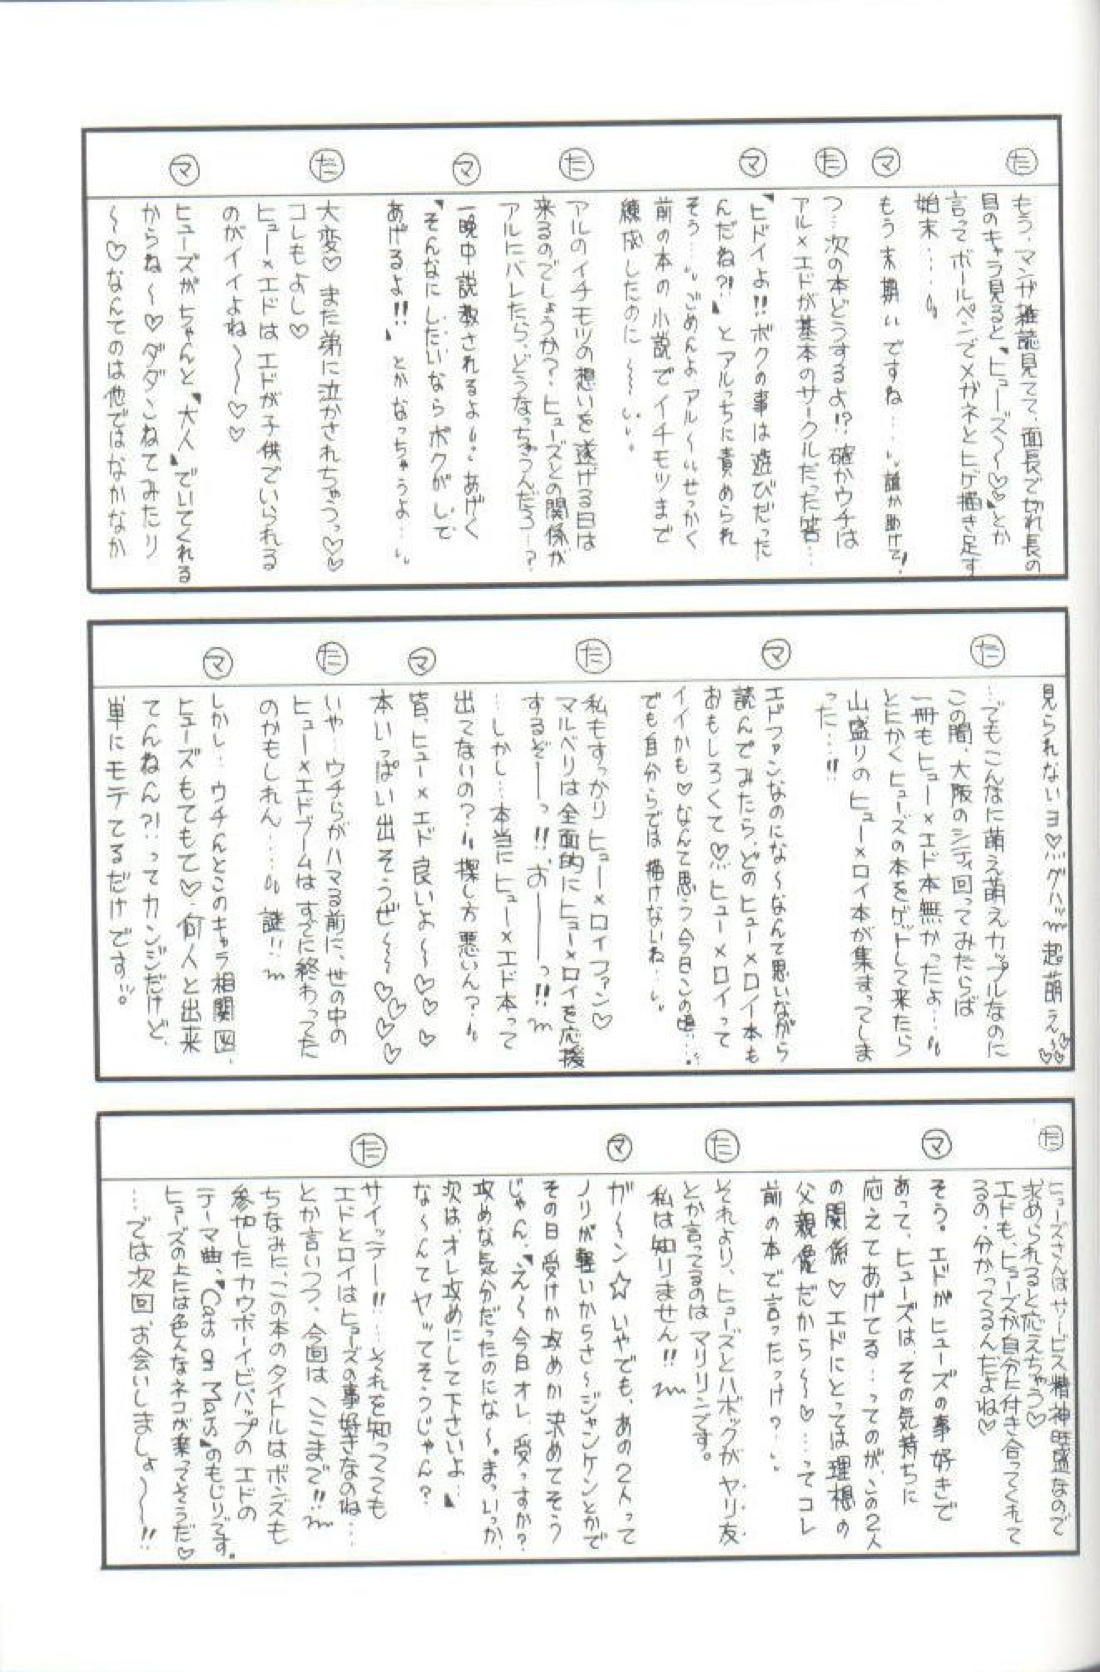 た
もう、マンガ雑誌見てて、面長で切れ長の
目のキャラ見ると、"ヒューズ〜♡♡"とか
言ってボールペンでメガネとヒゲ描き足す
始末…
マ
もう末期ですね……誰か助けて!
た
つ…次の本どうするよ!? 確かウチは
アル×エドが基本のサークルだった筈…
マ
"ヒドイよ!!ボクの事は遊びだった
んだね?!"とアルっちに責められ
そう…ごめんよアル〜せっかく
前の本の小説でイチモツまで
練成したのに〜〜
た
アルのイチモツの想いを遂げる日は
来るのでしょうか?ヒューズとの関係が
アルにバレたら、どうなっちゃうんだろー?
マ
一晩中説教されるよ…あげく
"そんなにしたいならボクがして
あげるよ!!"とかなっちゃうよ…
た
大変♡また弟に泣かされちゃうっ♡♡
コレもよし♡
ヒュー×エドはエドが子供でいられる
のがイイよね〜〜〜♡♡
マ
ヒューズがちゃんと"大人"でいてくれる
からね〜♡ダダこねてみたり
〜♡なんてのは他ではなかなか
見られないヨ♡グハッ 超萌え〜♡♡♡
た
…でもこんなに萌え萌えカップルなのに
この間、大阪のシティ回ってみたらば
一冊もヒュー×エド本無かったよ…
とにかくヒューズの本をゲットして来たら
山盛りのヒュー×ロイ本が集まってしま
った…!!
マ
エドファンなのにな〜なんて思いながら
読んでみたら、どのヒュー×ロイ本も
おもしろくて♡ヒュー×ロイって
イイかも♡なんて思う今日この頃…。
でも自分からでは描けないね…
た
私もすっかりヒュー×ロイファン♡
マルベリは全面的にヒュー×ロイを応援
するぞーーっ!!おーーーっ!!
…しかし…本当にヒュー×エド本って
出てないの?探し方悪いん?
マ
皆、ヒュー×エド良いよ〜♡♡♡
本いっぱい出そうぜ〜〜♡♡♡♡♡
た
いや…ウチらがハマる前に、世の中の
ヒュー×エドブームはすでに終わってた
のかもしれん…謎!!
マ
しかし…ウチんとこのキャラ相関図、
ヒューズもてもて♡何人と出来
てんねん?!…ってカンジだけど、
単にモテてるだけです。
た
ヒューズさんはサービス精神旺盛なので
求められると応えちゃう♡
エドも、ヒューズが自分に付き合ってくれて
るの、分かってるんだよね♡
マ
そう。エドがヒューズの事好きで
あって、ヒューズは、その気持ちに
応えてあげてる…ってのが、この2人
の関係♡エドにとっては理想の
父親像だから〜〜♡…ってコレ
前の本で言ったっけ?…
た
それより、ヒューズとハボックがヤリ友
とか言ってるのはマリリンです。
私は知りません!!
マ
ガ〜ン☆いやでも、あの2人って
ノリが軽いからさ〜ジャンケンとかで
その日受けか攻めか決めてそう
じゃん。"え〜今日オレ、受っすか?
攻めな気分だったのにな〜。まっいっか、
次はオレ攻めにして下さいよ。"
な〜んてヤッてそうじゃん?
た
サイッテー!!…それを知ってても
エドとロイはヒューズの事好きなのね…
とか言いつつ、今回は、ここまで!!
ちなみに、この本のタイトルはボンズも
参加したカウボーイビバップのエドの
テーマ曲、"Cats on Mars"のもじりです。
ヒューズの上には色んなネコが乗ってそうだ♡
…では次回、お会いしましょ〜〜!!